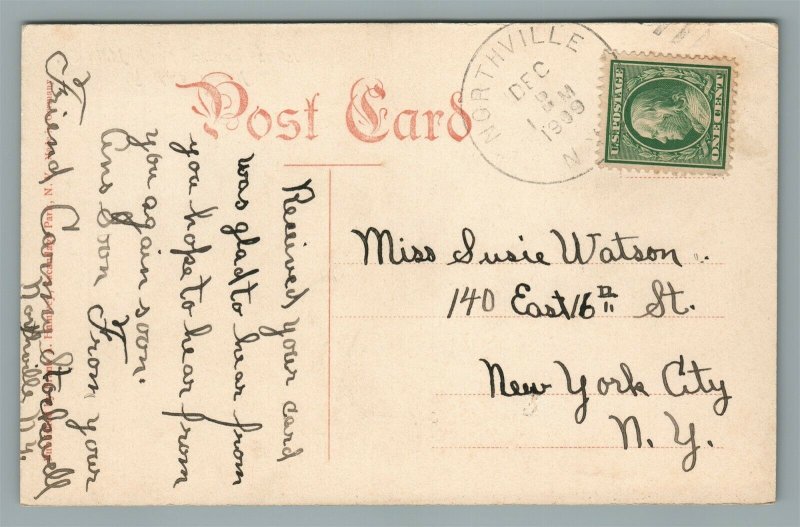 Post Card
NORTHVILLE
DEC
8
1 PM
1909
N.Y.
U.S. POSTAGE
ONE CENT
Miss Susie Watson
140 East 16th St.
New York City
N. Y.
Received your card
was glad to hear from
you hope to hear from
you again soon.
Ans Soon From your
Friend
Stockwell
Northville N.Y.